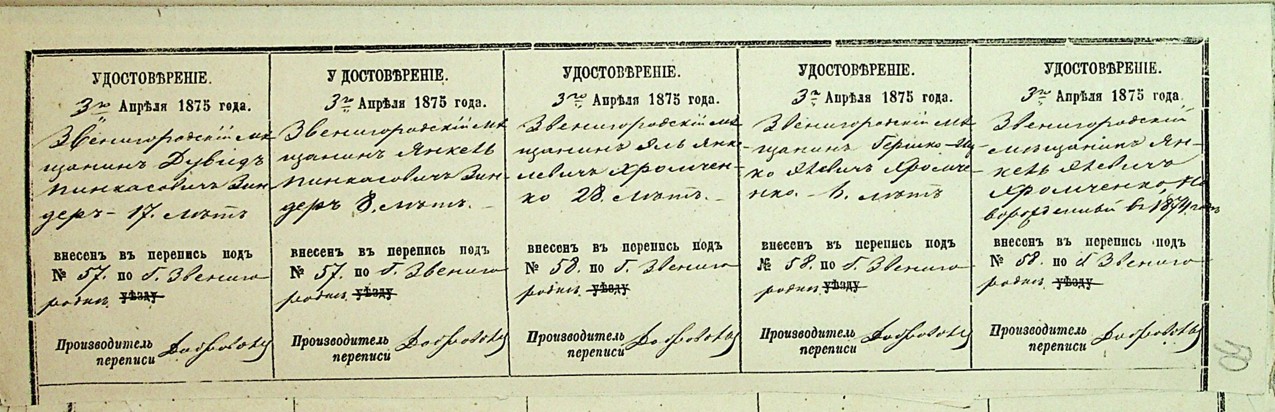 УДОСТОВѢРЕНІЕ.
3го Апрѣля 1875 года.
Звенигородскій мѣ
щанинъ Дувидъ
Пинкасовичъ Зин
деръ - 17. лѣтъ
внесенъ въ перепись подъ
№ 57. по г. Звениго
родки уѣзду
Производитель
переписи
УДОСТОВѢРЕНІЕ.
3го Апрѣля 1875 года.
Звенигородскій мѣ
щанинъ Янкель
Пинкасовичъ Зин
деръ 8. лѣтъ. -
внесенъ въ перепись подъ
№ 57. по г. Звениго
родки уѣзду
Производитель
переписи
УДОСТОВѢРЕНІЕ.
3го Апрѣля 1875 года.
Звенигородскій мѣ
щанинъ Яль Янк
левичъ Хромчен-
ко 28. лѣтъ. -
внесенъ въ перепись подъ
№ 58. по г. Звениго
родки уѣзду
Производитель
переписи
УДОСТОВѢРЕНІЕ.
3го Апрѣля 1875 года.
Звенигородскій мѣ
щанинъ Гершко-Иц
ко Яевичъ Хромче
нко. - 6. лѣтъ
внесенъ въ перепись подъ
№ 58. по г. Звениго
родки уѣзду
Производитель
переписи
УДОСТОВѢРЕНІЕ.
3го Апрѣля 1875 года.
Звенигородскій
мѣщанинъ Ян-
кель Яевичъ
Хромченко, но
ворожденный въ 1874 году
внесенъ въ перепись подъ
№ 58. по г. Звениго
родки уѣзду
Производитель
переписи